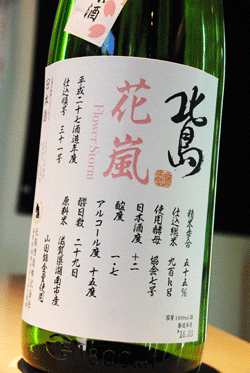 酒
北島
花嵐
Flower Storm
精米歩合 五十五%
仕込総米 九百kg
使用酵母 協会七号
日本酒度 +二
酸度 一.七
アルコール度 十五度
醪日数 二十九日
原料米 滋賀県湖南市産
山田錦全量使用
平成二十七酒造年度
仕込順号 三十一号
容量1800ml詰
製造年月
16.03